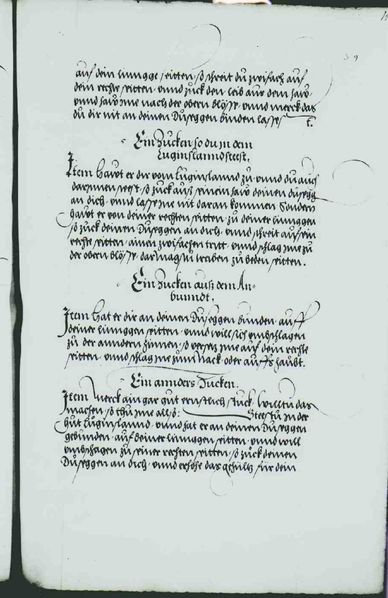 auf dein lingge seitten, so schreit du zwifach auf
dein rechte seitten, vnnd zuck den leib aus dem haw,
vnnd haw Ime nach der obern blöß, vnnd merck das
du dir nit an deinen Dusseggen binden lassest.
Ein Zucken so du in dem
Luginslannd steest.
Item Hawt er dir vom Luginslannd zu, vnnd du auch
darinnen steest, so zuck auß seinem haw deinen dussegg
an dich, vnnd lass Ime nit daran kommen, Sondern
hawt er von deiner rechten seitten, zu deiner linnggen
so zuck deinen Dusseggen an dich, vnnd schreit auf sein
rechte seitten, ainen zwifachen trit, vnnd schlag Ime zu
der obern blöß, das magstu treiben zu beden seitten.
Ein Zucken auß dem An-
bunndt.
Item Hat er dir an deinen Dusseggen bunden, auff
deiner linnggen seitten, vnnd will sich umbschlagen
zu der anndern zinnen, so auf dein rechte
seitten, vnnd schlag Ime zum Nack, oder auffs haubt.
Ein annders Zucken.
Item Merck ain gar guet ernstlich stuck, willtu das
machen, so thu Ime also: Steestu In der
huet Luginslannd, vnnd hat er an deinen Dusseggen
gebunden, auf deiner linnggen seitten, vnnd will
umbschlagen zu seiner rechten seitten, so zuck deinen
Dusseggen an dich, vnnd erhöhe das gehültz für dein